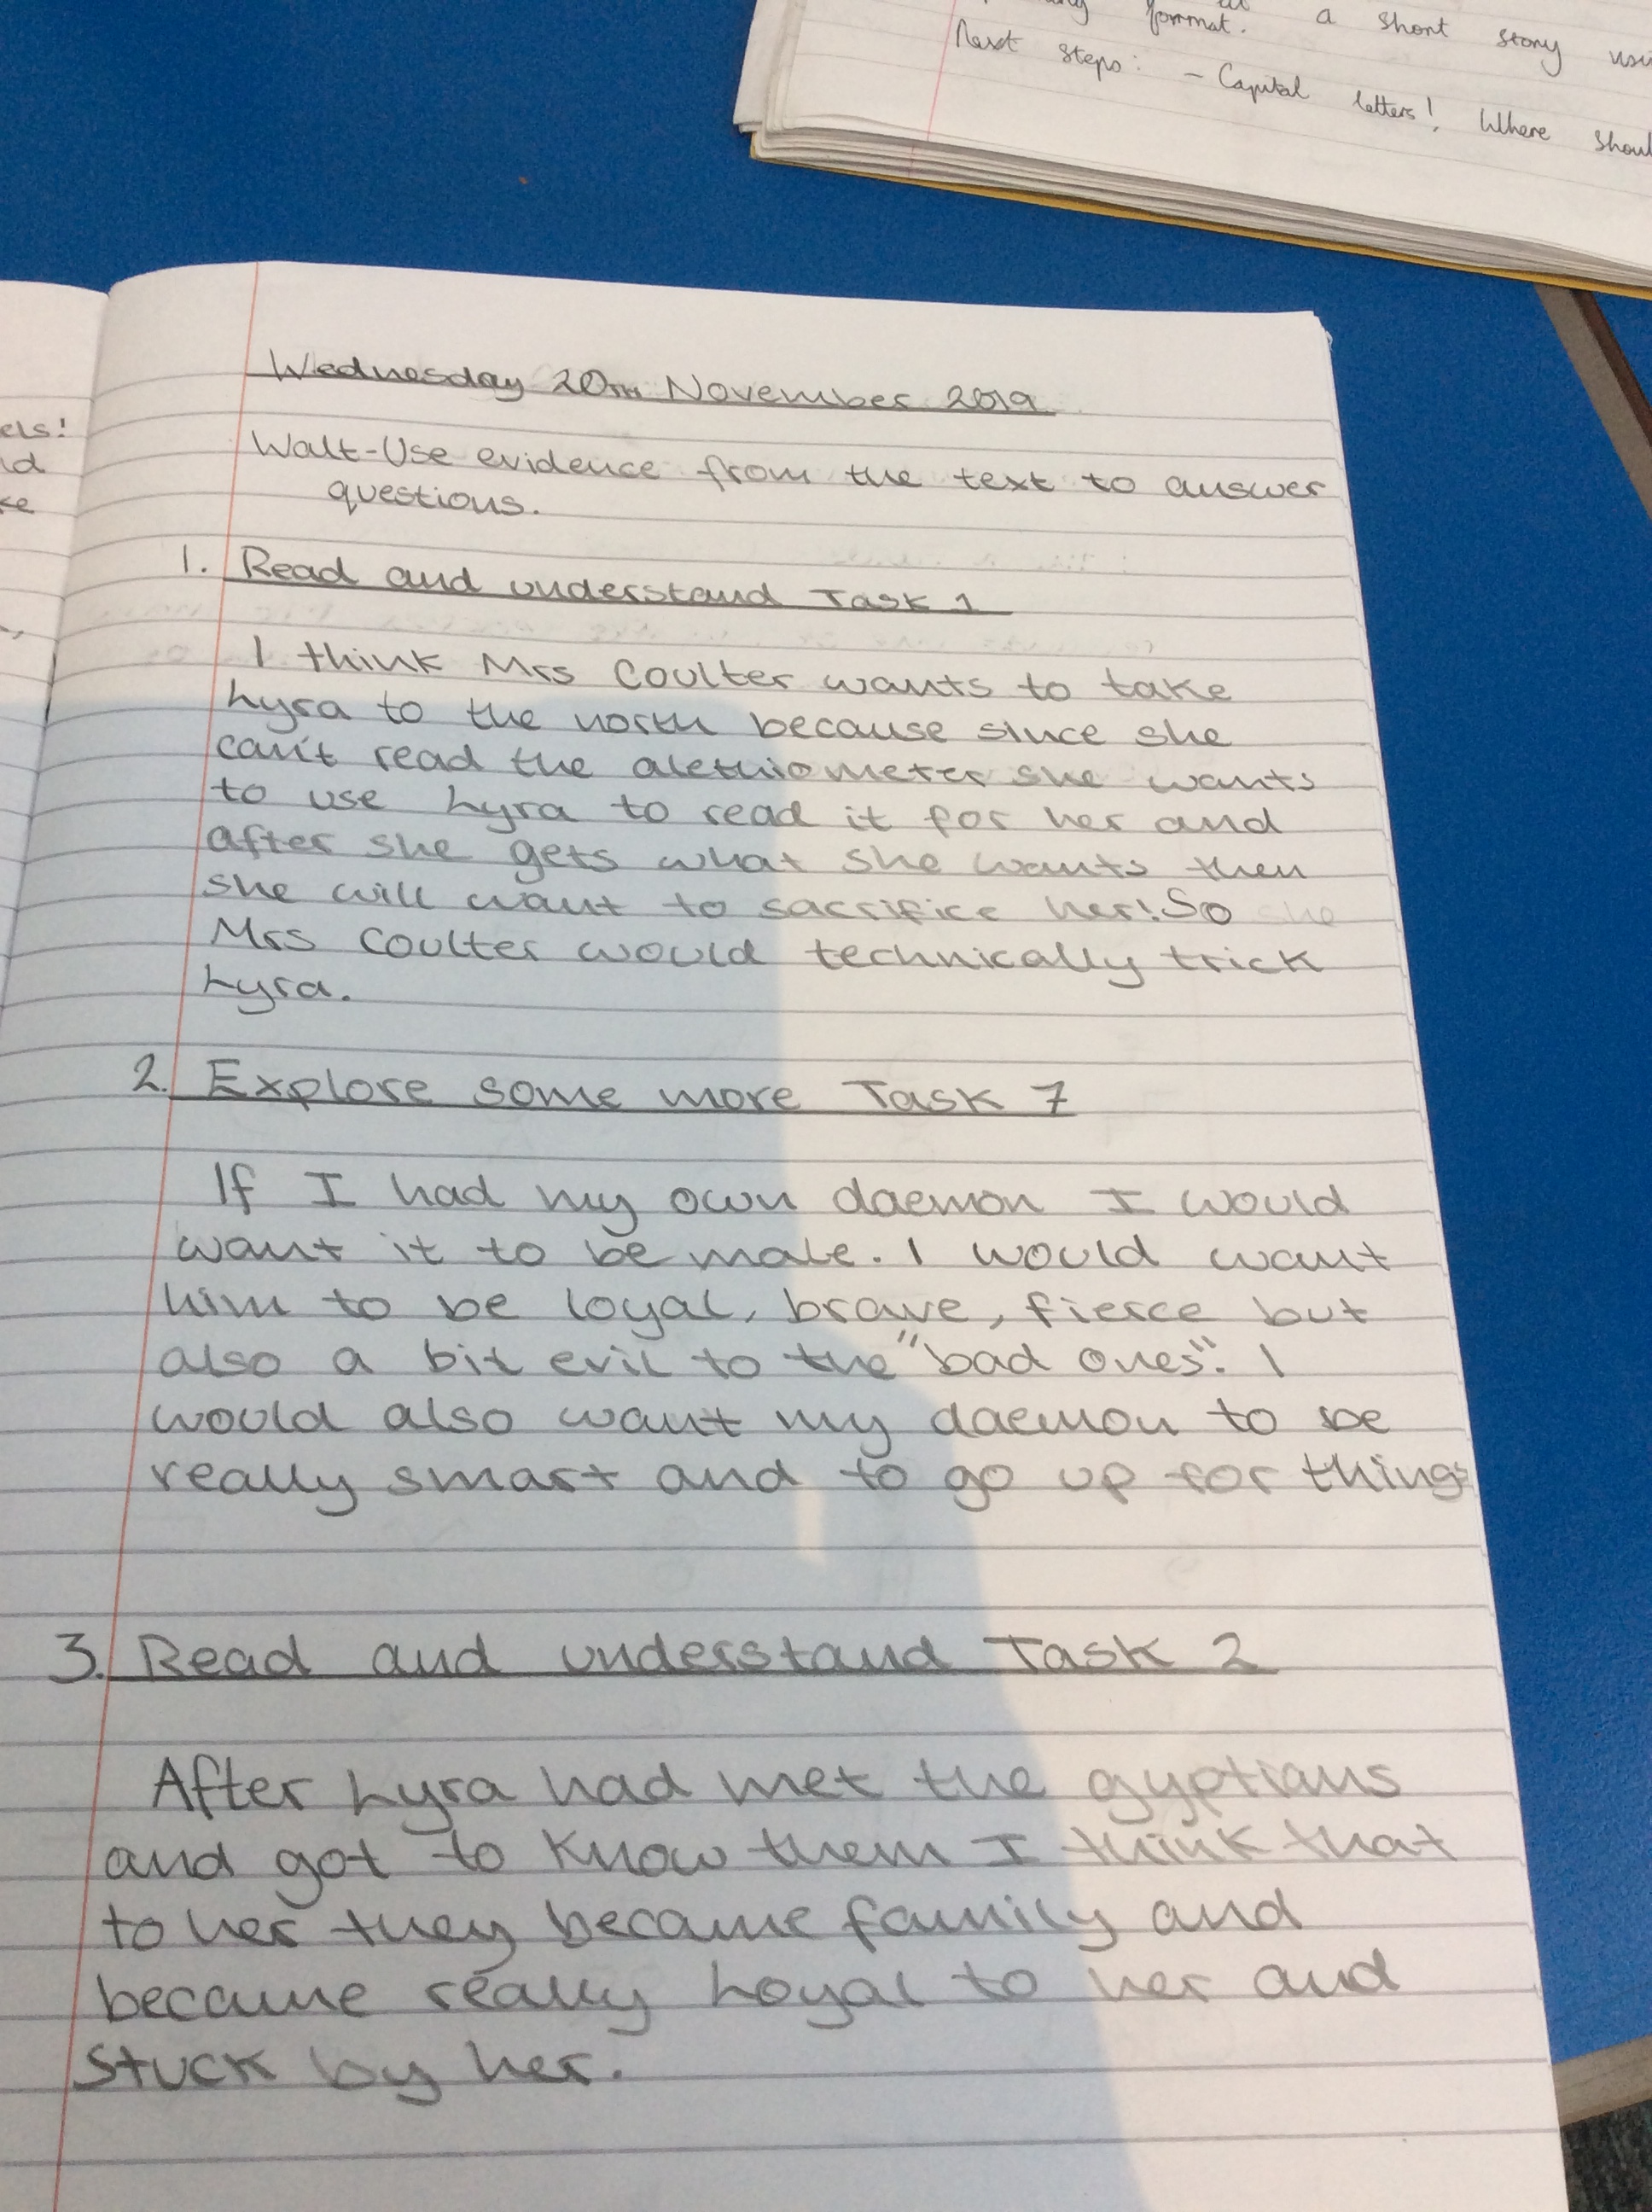 format. a short story
Next steps: - Capital letters! Where
els!
Wednesday 20TH November 2019
Walt-Use evidence from the text to answer
questions.
1. Read and understand Task 1
I think Mrs Coulter wants to take
Lyra to the north because since she
can't read the alethiometer she wants
to use Lyra to read it for her and
after she gets what she wants then
she will want to sacrifice her! So she
Mrs Coulter would technically trick
Lyra.
2. Explore some more Task 7
If I had my own daemon I would
want it to be male. I would want
him to be loyal, brave, fierce but
also a bit evil to the "bad ones". I
would also want my daemon to be
really smart and to go up for things
3. Read and understand Task 2
After Lyra had met the gyptians
and got to know them I think that
to her they became family and
became really Loyal to her and
stuck by her.